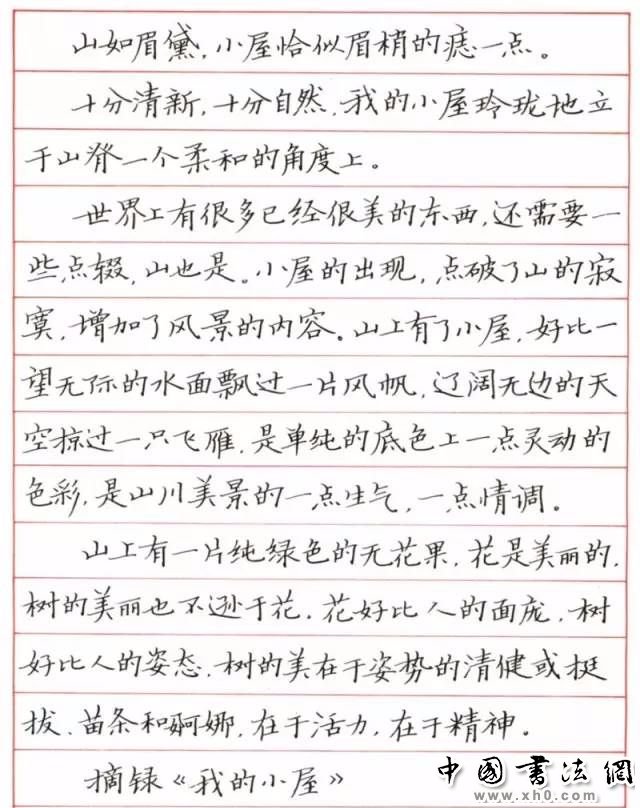 山如眉黛,小屋恰似眉梢的痣一点。
十分清新,十分自然,我的小屋玲珑地立
于山脊一个柔和的角度上。
世界上有很多已经很美的东西,还需要一
些点缀,山也是。小屋的出现,点破了山的寂
寞,增加了风景的内容。山上有了小屋,好比一
望无际的水面飘过一片风帆,辽阔无边的天
空掠过一只飞雁,是单纯的底色上一点灵动的
色彩,是山川美景的一点生气,一点情调。
山上有一片纯绿色的无花果,花是美丽的,
树的美丽也不逊于花。花好比人的面庞,树
好比人的姿态,树的美在于姿势的清健或挺
拔、苗条和婀娜,在于活力,在于精神。
摘録《我的小屋》
中国书法網
www.xh0.com